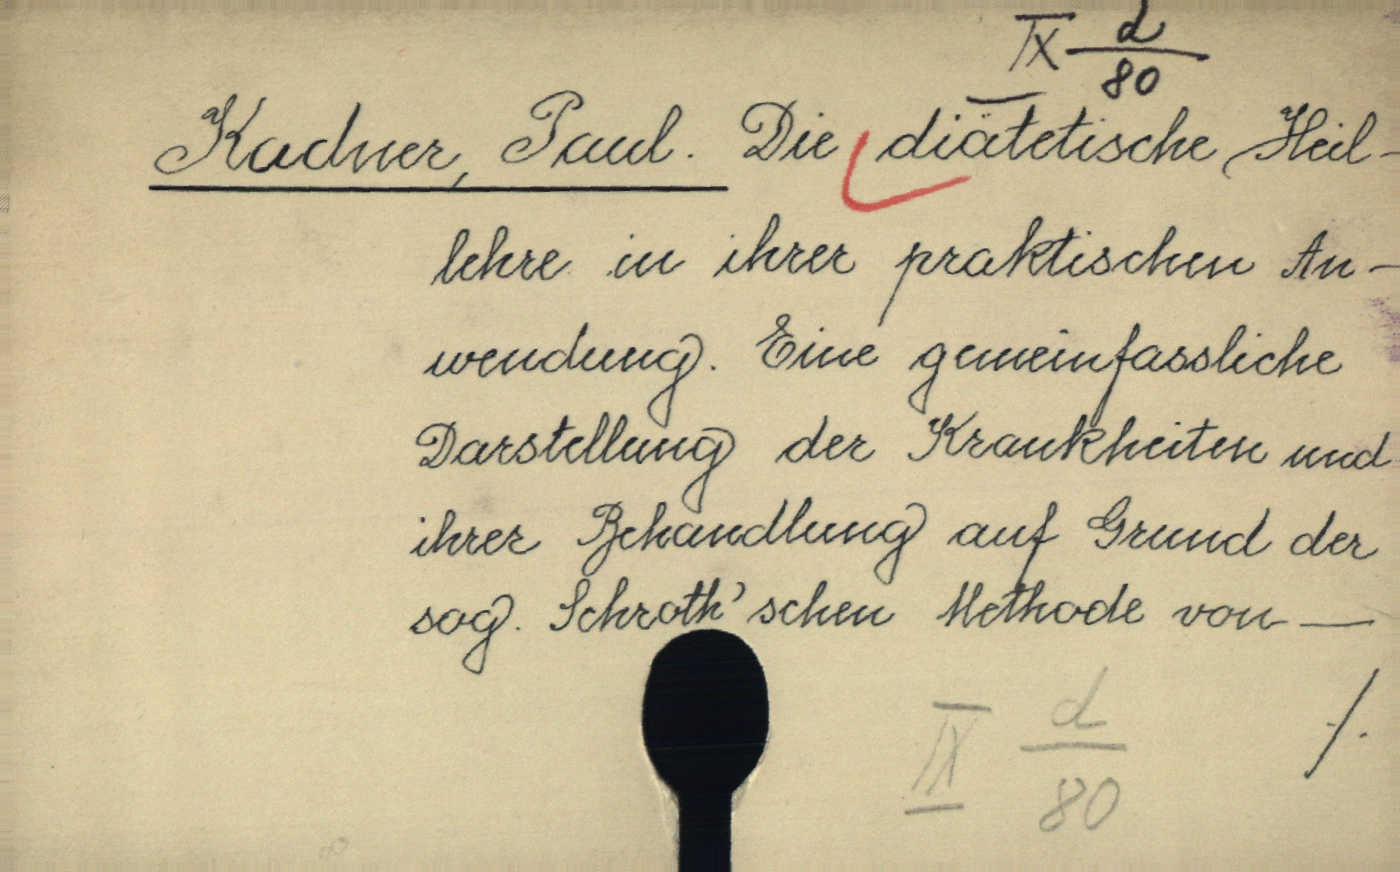 IX d/80
Kadner, Paul. Die diätetische Heil-
lehre in ihrer praktischen An-
wendung. Eine gemeinfassliche
Darstellung der Krankheiten und
ihrer Behandlung auf Grund der
sog. Schroth'schen Methode von —
./.
IX d/80